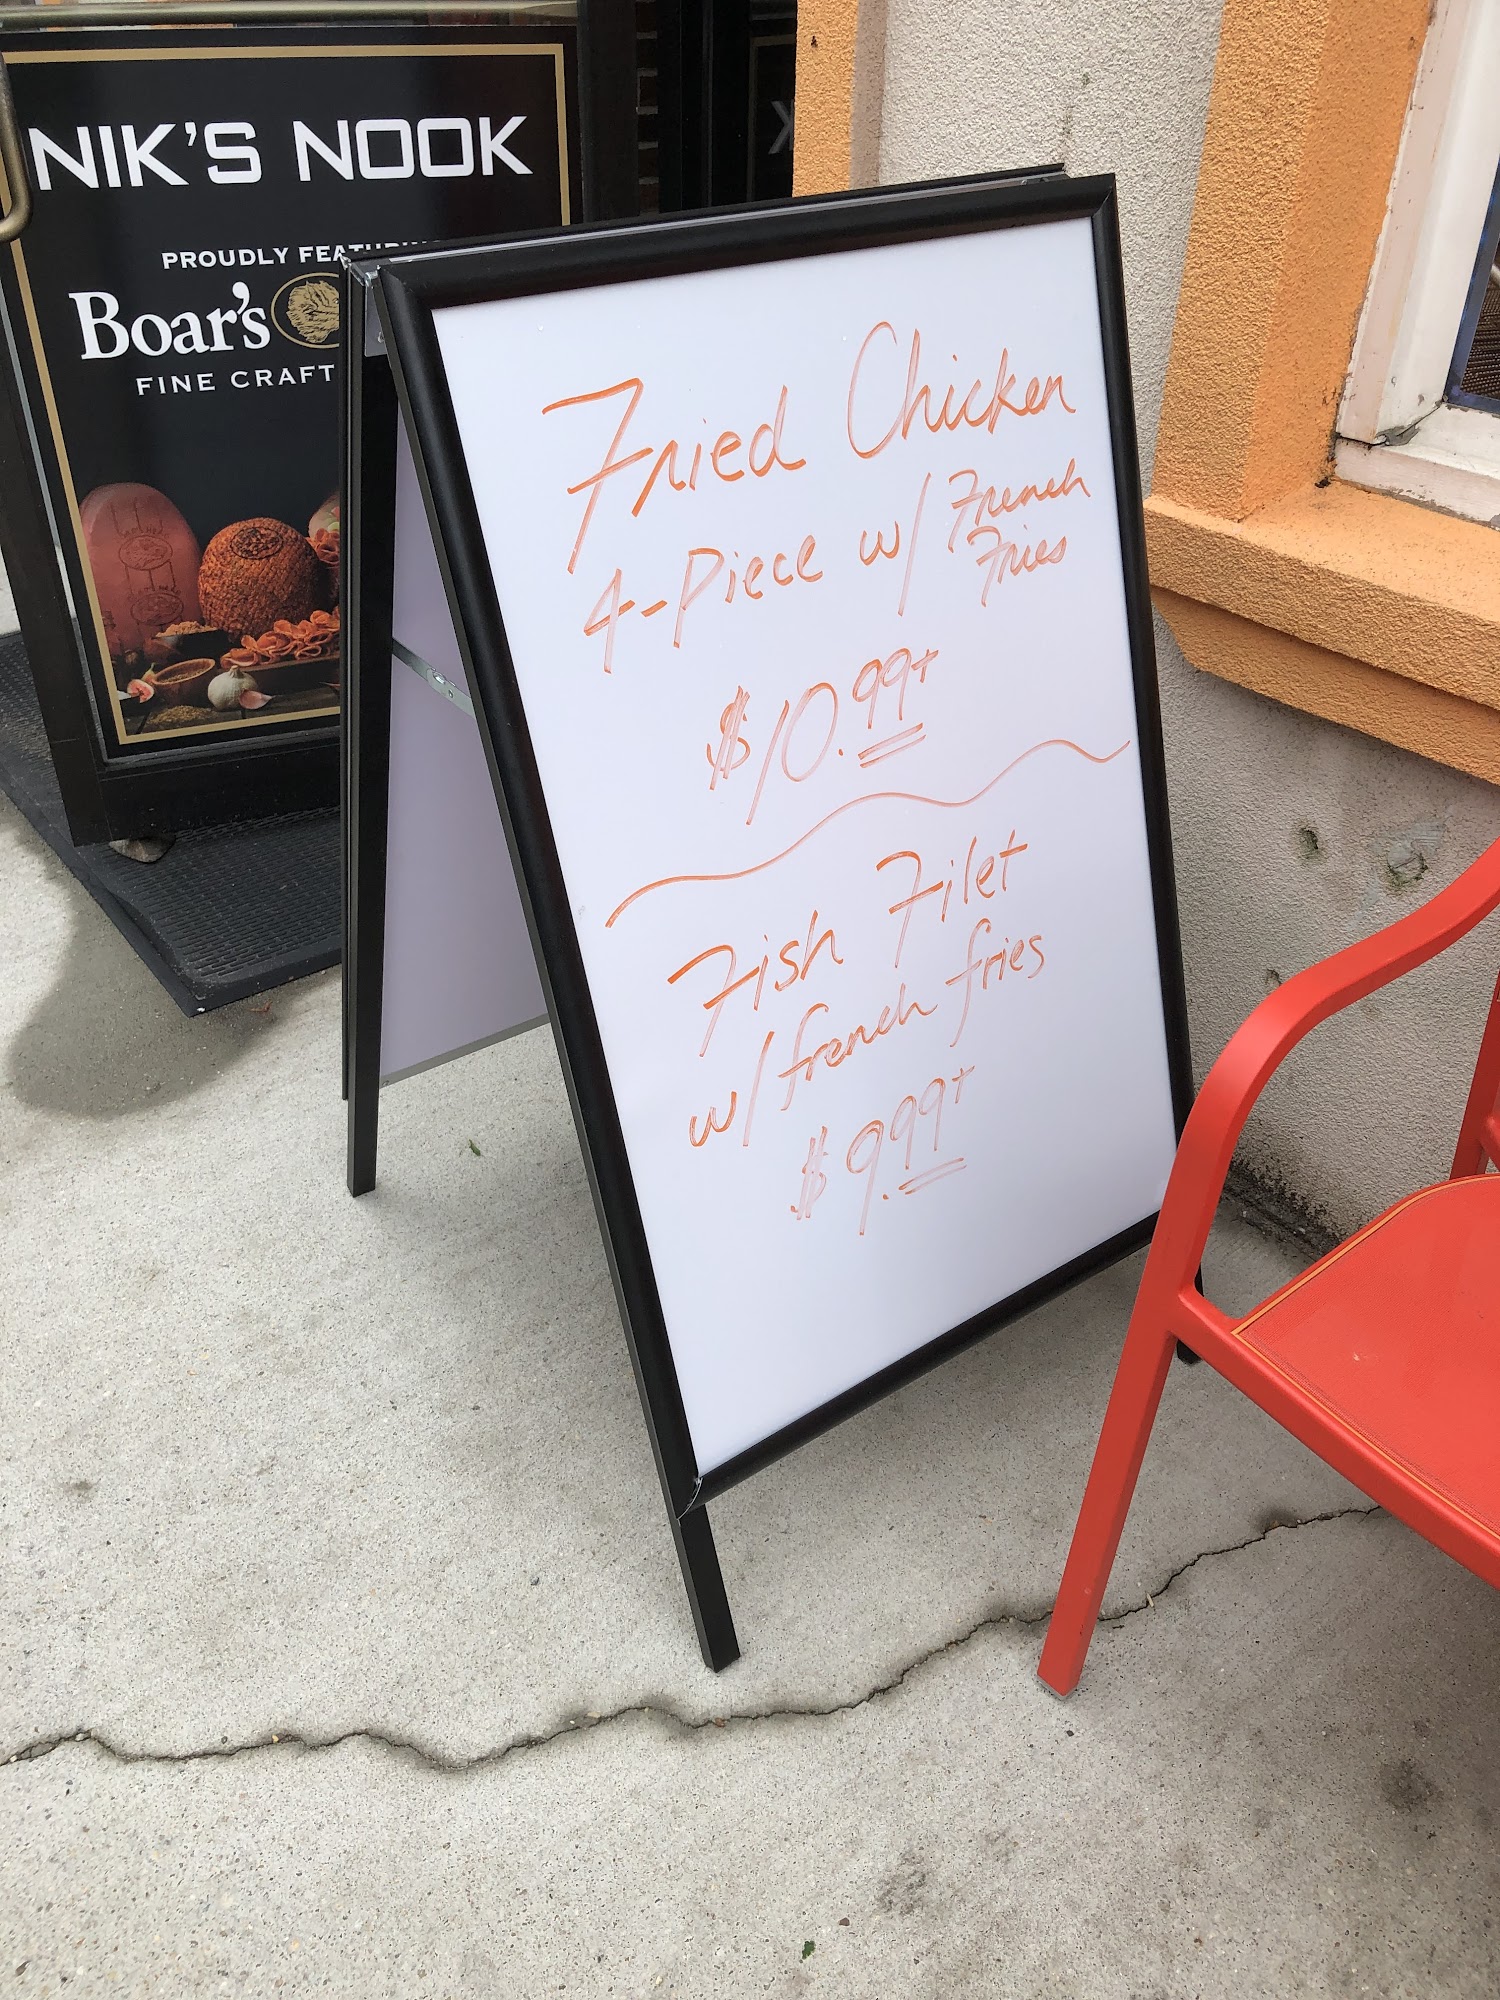 NIK'S NOOK
PROUDLY
Boar's
FINE CRAFT
Fried Chicken
4-Piece w/ French
Fries
$10.99+
Fish Filet
w/ french fries
$9.99+